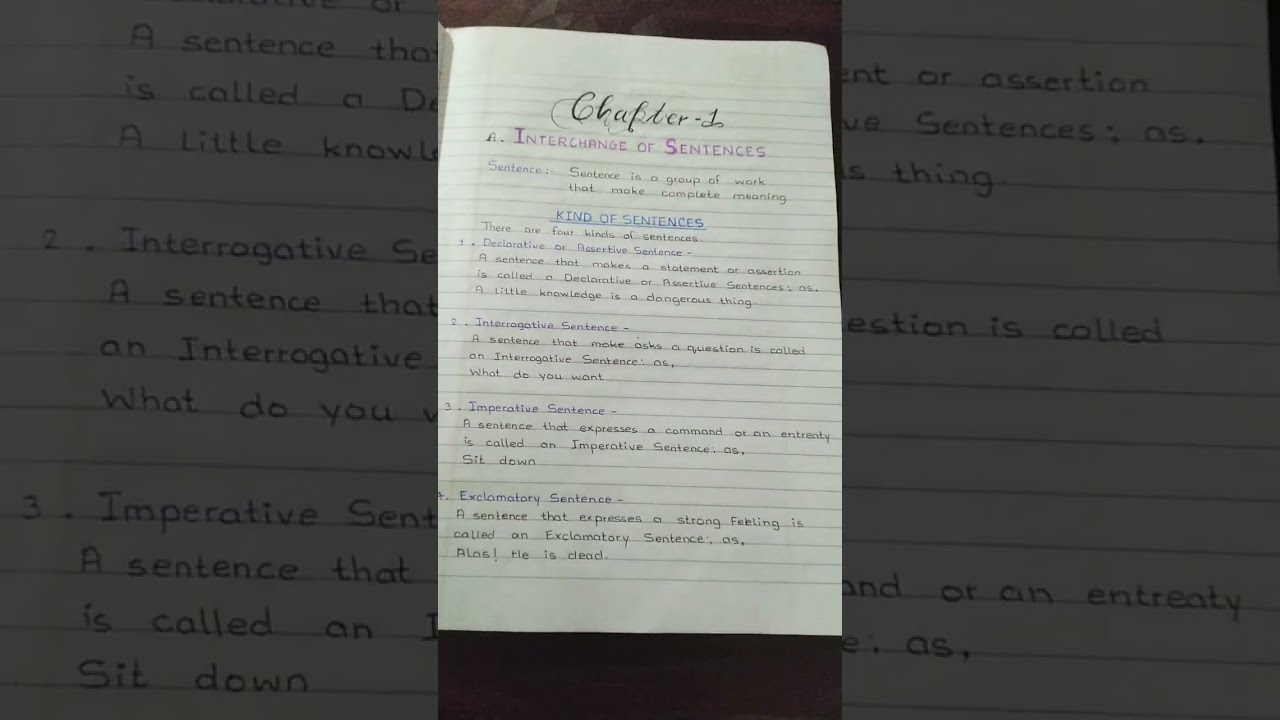 Chapter-1
A. INTERCHANGE OF SENTENCES
Sentence:- Sentence is a group of work
that make complete meaning
KIND OF SENTENCES
There are four kinds of sentences.
1. Declarative or Assertive Sentence -
A sentence that makes a statement or assertion
is called a Declarative or Assertive Sentences: as.
A little knowledge is a dangerous thing.
2. Interrogative Sentence -
A sentence that make asks a question is called
an Interrogative Sentence: as,
What do you want
3. Imperative Sentence -
A sentence that expresses a command or an entreaty
is called an Imperative Sentence: as,
Sit down
4. Exclamatory Sentence -
A sentence that expresses a strong Feeling is
called an Exclamatory Sentence: as,
Alas! He is dead.